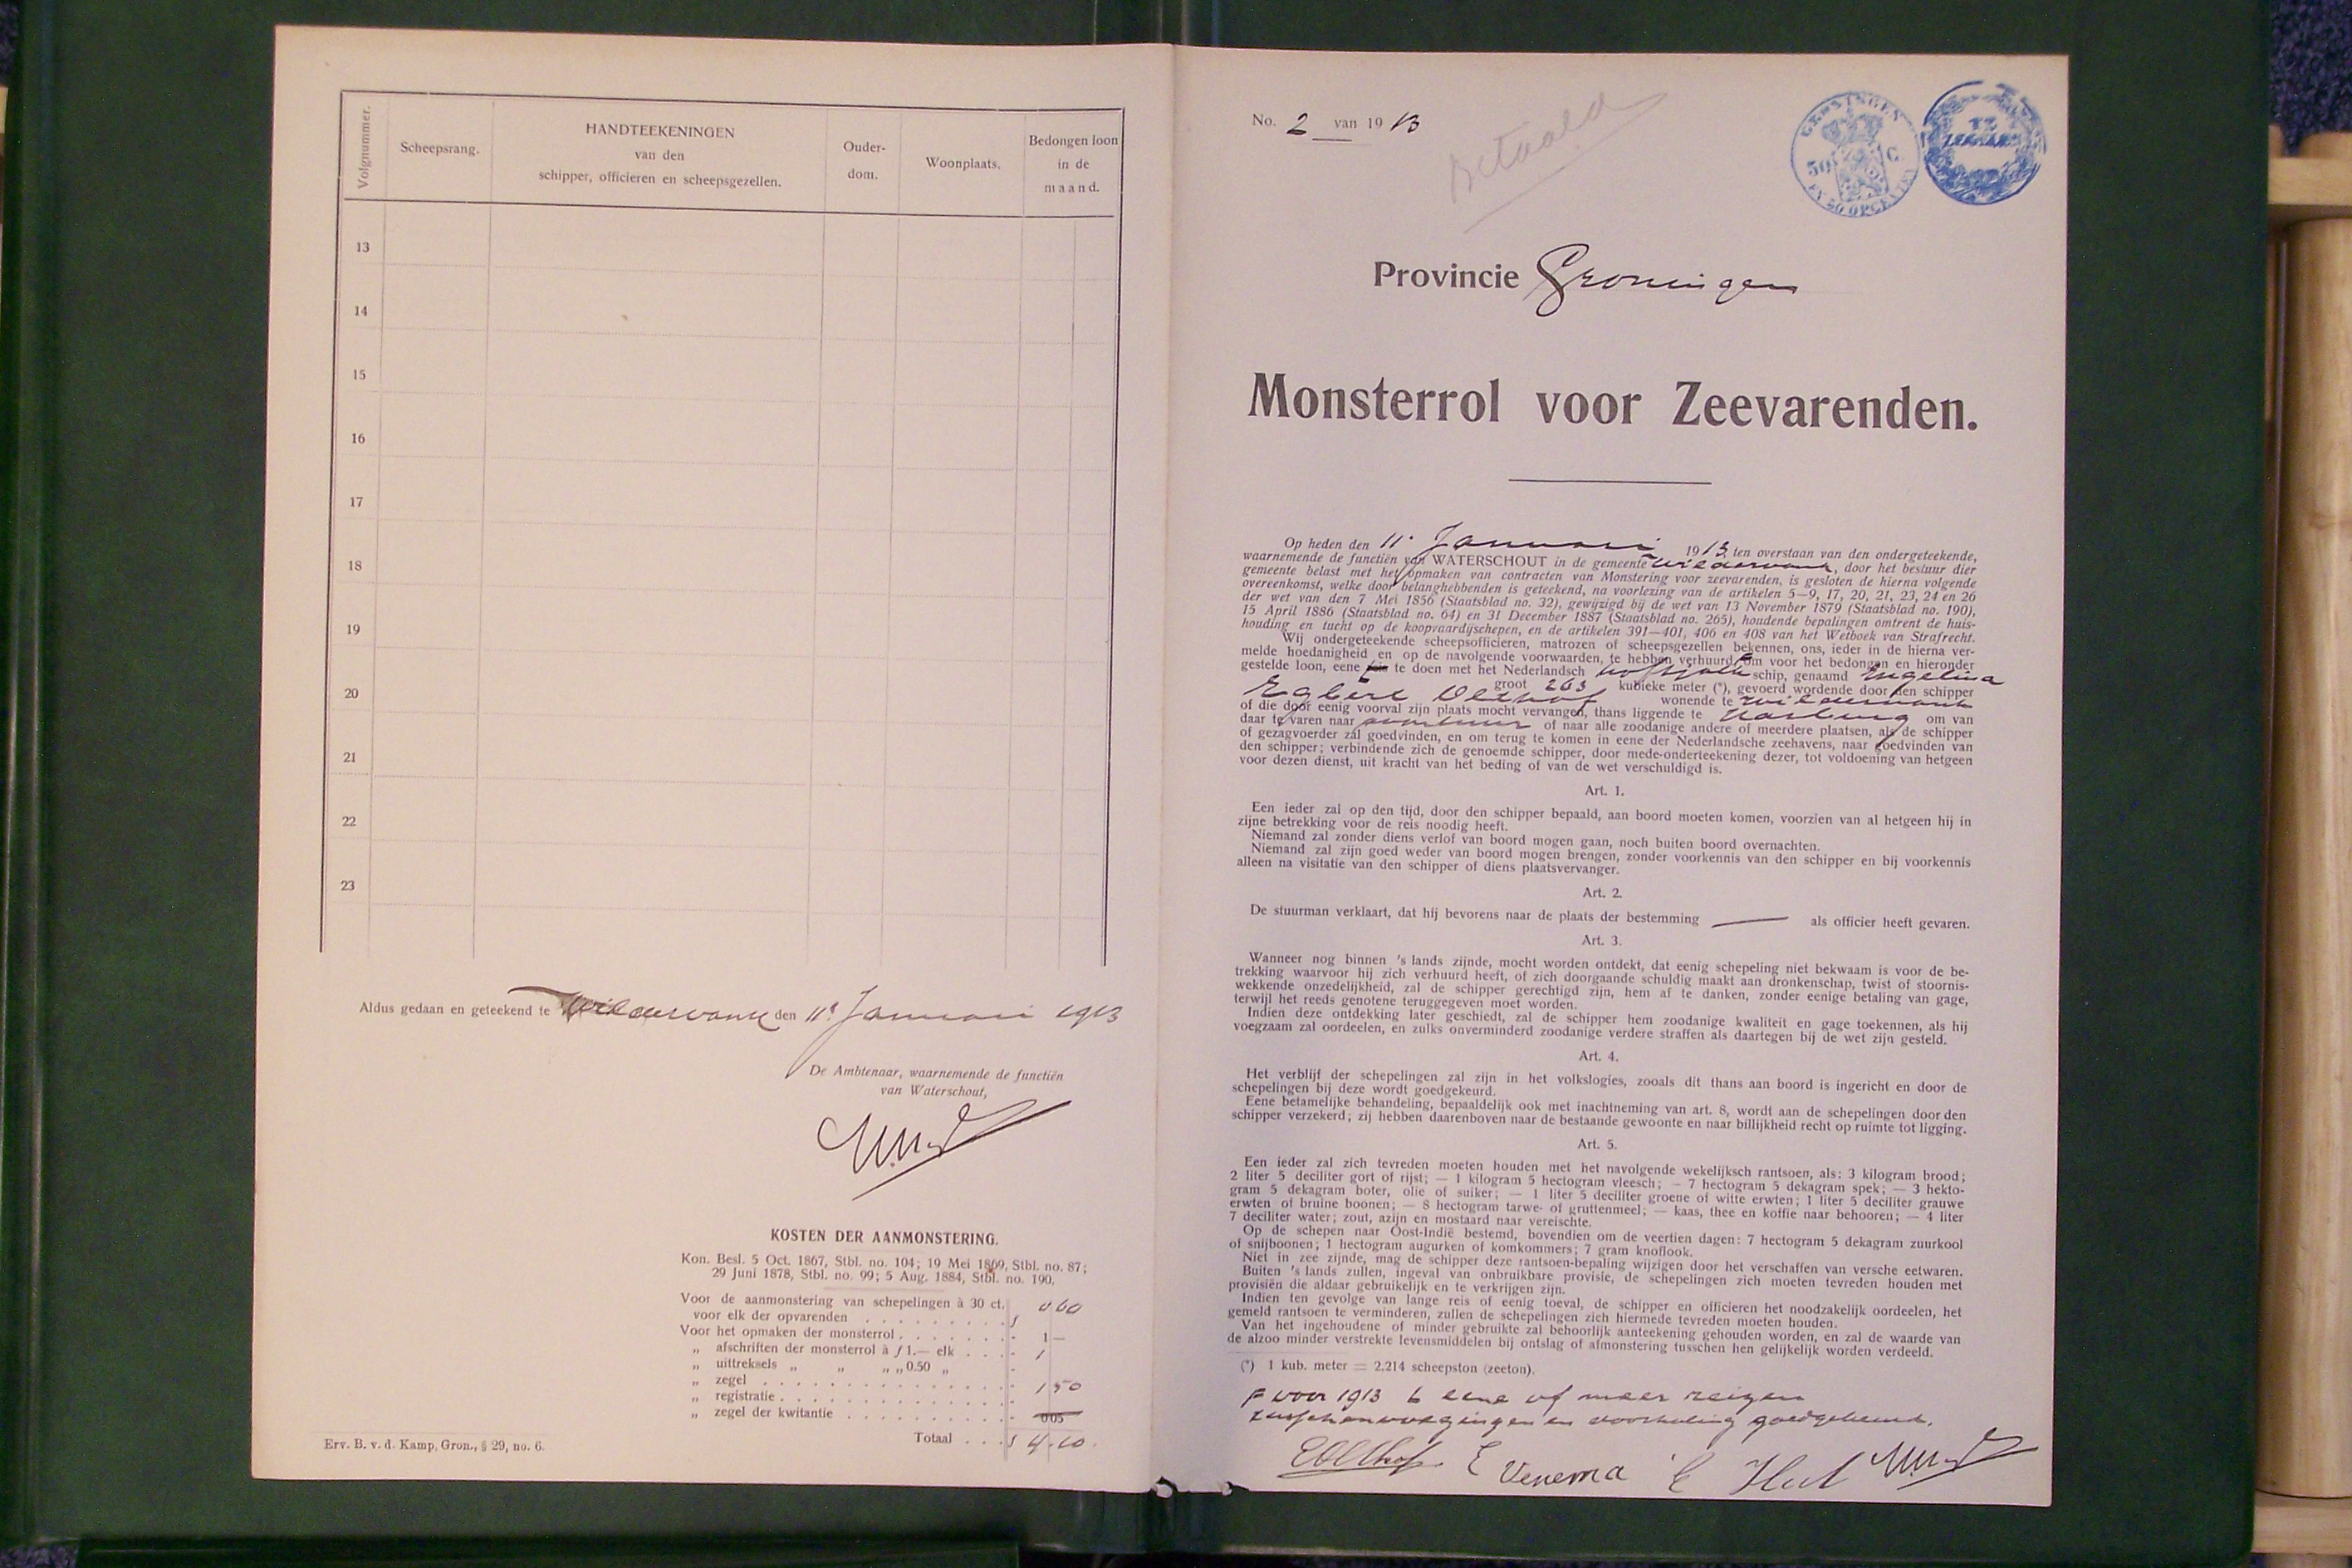 Volgnummer.
Scheepsrang.
HANDTEEKENINGEN
van den
schipper, officieren en scheepsgezellen.
Ouder-
dom.
Woonplaats.
Bedongen loon
in de
maand.
13
14
15
16
17
18
19
20
21
22
23
Aldus gedaan en geteekend te Wildervank den 11e Januari 1913
De Ambtenaar, waarnemende de functiën
van Waterschout,
KOSTEN DER AANMONSTERING.
Kon. Besl. 5 Oct. 1867, Stbl. no. 104; 19 Mei 1869, Stbl. no. 87;
29 Juni 1878, Stbl. no. 99; 5 Aug. 1884, Stbl. no. 190.
Voor de aanmonstering van schepelingen à 30 ct.
voor elk der opvarenden . . . . . . . . . . ƒ 0 60
Voor het opmaken der monsterrol . . . . . . . - 1 —
„ afschriften der monsterrol à ƒ 1.— elk . . . - 1
„ uittreksels „ „ „ „ 0.50 „ -
„ zegel . . . . . . . . . . . . . . . - 1 50
„ registratie . . . . . . . . . . . . . . -
„ zegel der kwitantie . . . . . . . . . . - 005
Totaal . . . ƒ 4.10
Erv. B. v. d. Kamp, Gron., § 29, no. 6.
No. 2 van 1913
Betaald
GRONINGEN
50 C.
EN 50 OPCENTEN
Provincie Groningen
Monsterrol voor Zeevarenden.
Op heden den 11e Januari 1913 ten overstaan van den ondergeteekende,
waarnemende de functiën van WATERSCHOUT in de gemeente Wildervank, door het bestuur dier
gemeente belast met het opmaken van contracten van Monstering voor zeevarenden, is gesloten de hierna volgende
overeenkomst, welke door belanghebbenden is geteekend, na voorlezing van de artikelen 5—9, 17, 20, 21, 23, 24 en 26
der wet van den 7 Mei 1856 (Staatsblad no. 32), gewijzigd bij de wet van 13 November 1879 (Staatsblad no. 190),
15 April 1886 (Staatsblad no. 64) en 31 December 1887 (Staatsblad no. 265), houdende bepalingen omtrent de huis-
houding en tucht op de koopvaardijschepen, en de artikelen 391—401, 406 en 408 van het Wetboek van Strafrecht.
Wij ondergeteekende scheepsofficieren, matrozen of scheepsgezellen bekennen, ons, ieder in de hierna ver-
melde hoedanigheid en op de navolgende voorwaarden, te hebben verhuurd om voor het bedongen en hieronder
gestelde loon, eene te doen met het Nederlandsch koftjalk schip, genaamd Engelina
groot 263 kubieke meter (*), gevoerd wordende door den schipper
Egbert Olthof wonende te Wildervank
of die door eenig voorval zijn plaats mocht vervangen, thans liggende te Harburg om van
daar te varen naar avontuur of naar alle zoodanige andere of meerdere plaatsen, als de schipper
of gezagvoerder zal goedvinden, en om terug te komen in eene der Nederlandsche zeehavens, naar goedvinden van
den schipper; verbindende zich de genoemde schipper, door mede-onderteekening dezer, tot voldoening van hetgeen
voor dezen dienst, uit kracht van het beding of van de wet verschuldigd is.
Art. 1.
Een ieder zal op den tijd, door den schipper bepaald, aan boord moeten komen, voorzien van al hetgeen hij in
zijne betrekking voor de reis noodig heeft.
Niemand zal zonder diens verlof van boord mogen gaan, noch buiten boord overnachten.
Niemand zal zijn goed weder van boord mogen brengen, zonder voorkennis van den schipper en bij voorkennis
alleen na visitatie van den schipper of diens plaatsvervanger.
Art. 2.
De stuurman verklaart, dat hij bevorens naar de plaats der bestemming — als officier heeft gevaren.
Art. 3.
Wanneer nog binnen 's lands zijnde, mocht worden ontdekt, dat eenig schepeling niet bekwaam is voor de be-
trekking waarvoor hij zich verhuurd heeft, of zich doorgaande schuldig maakt aan dronkenschap, twist of stoornis-
wekkende onzedelijkheid, zal de schipper gerechtigd zijn, hem af te danken, zonder eenige betaling van gage,
terwijl het reeds genotene teruggegeven moet worden.
Indien deze ontdekking later geschiedt, zal de schipper hem zoodanige kwaliteit en gage toekennen, als hij
voegzaam zal oordeelen, en zulks onverminderd zoodanige verdere straffen als daartegen bij de wet zijn gesteld.
Art. 4.
Het verblijf der schepelingen zal zijn in het volkslogies, zooals dit thans aan boord is ingericht en door de
schepelingen bij deze wordt goedgekeurd.
Eene betamelijke behandeling, bepaaldelijk ook met inachtneming van art. 8, wordt aan de schepelingen door den
schipper verzekerd; zij hebben daarenboven naar de bestaande gewoonte en naar billijkheid recht op ruimte tot ligging.
Art. 5.
Een ieder zal zich tevreden moeten houden met het navolgende wekelijksch rantsoen, als: 3 kilogram brood;
2 liter 5 deciliter gort of rijst; — 1 kilogram 5 hectogram vleesch; — 7 hectogram 5 dekagram spek; — 3 hekto-
gram 5 dekagram boter, olie of suiker; — 1 liter 5 deciliter groene of witte erwten; 1 liter 5 deciliter grauwe
erwten of bruine boonen; — 8 hectogram tarwe- of gruttenmeel; — kaas, thee en koffie naar behooren; — 4 liter
7 deciliter water; zout, azijn en mostaard naar vereischte.
Op de schepen naar Oost-Indië bestemd, bovendien om de veertien dagen: 7 hectogram 5 dekagram zuurkool
of snijboonen; 1 hectogram augurken of komkommers; 7 gram knoflook.
Niet in zee zijnde, mag de schipper deze rantsoen-bepaling wijzigen door het verschaffen van versche eetwaren.
Buiten 's lands zullen, ingeval van onbruikbare provisie, de schepelingen zich moeten tevreden houden met
provisiën die aldaar gebruikelijk en te verkrijgen zijn.
Indien ten gevolge van lange reis of eenig toeval, de schipper en officieren het noodzakelijk oordeelen, het
gemeld rantsoen te verminderen, zullen de schepelingen zich hiermede tevreden moeten houden.
Van het ingehoudene of minder gebruikte zal behoorlijk aanteekening gehouden worden, en zal de waarde van
de alzoo minder verstrekte levensmiddelen bij ontslag of afmonstering tusschen hen gelijkelijk worden verdeeld.
(*) 1 kub. meter = 2.214 scheepston (zeeton).
voor 1913 eene of meer reizen
tusschenvoegingen en doorhaling goedgekeurd.
EOlthof E Venema E